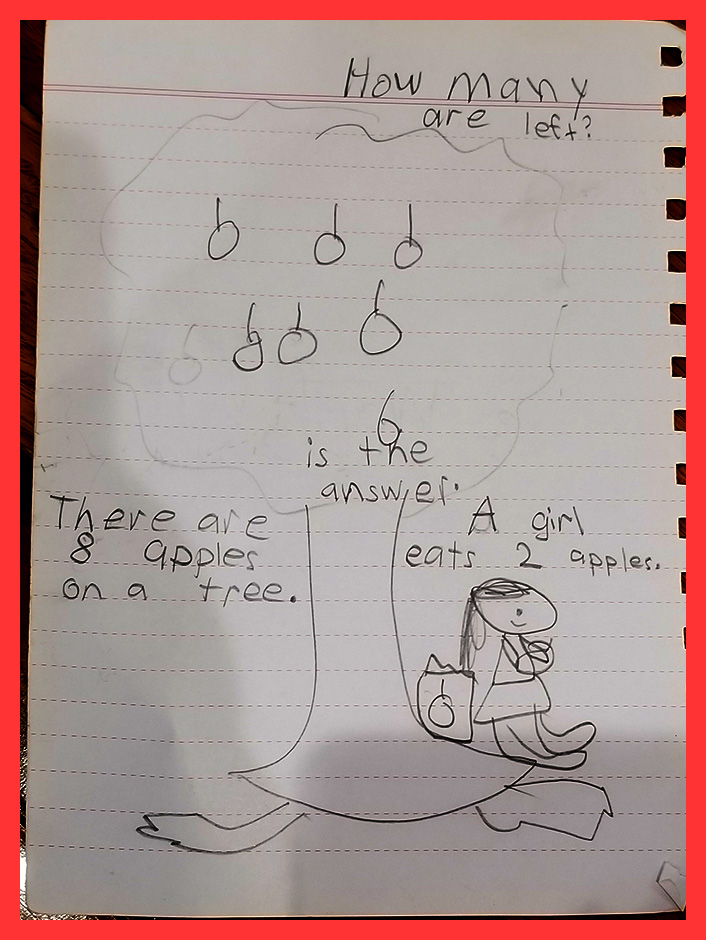 How many
are left?
6
is the
answer.
There are
8 apples
on a tree.
A girl
eats 2 apples.